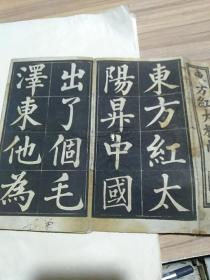 東方紅太
陽昇中國
出了個毛
澤東他為
東方紅大楷